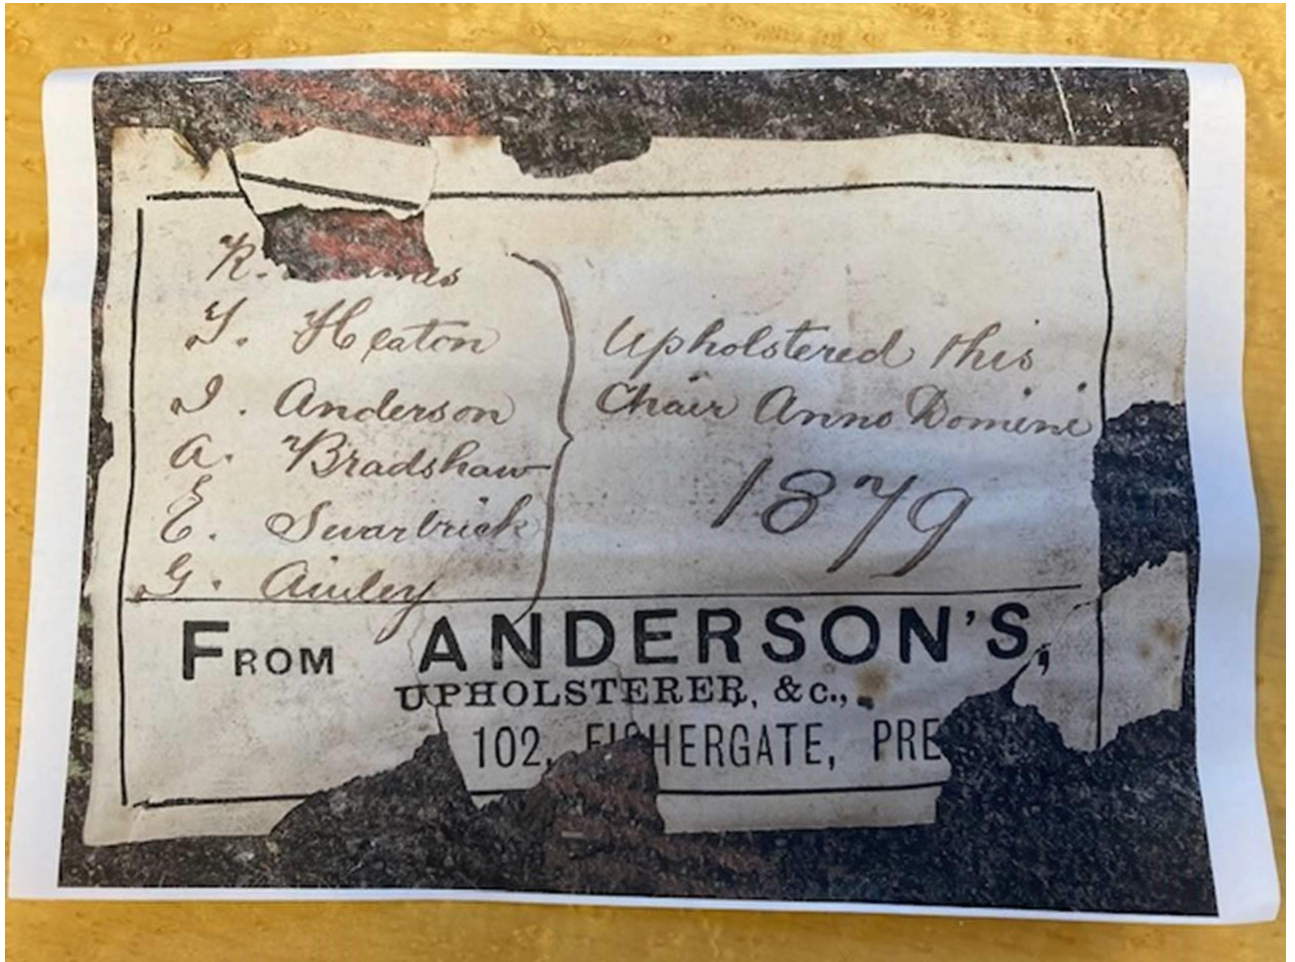 R.
T. Heaton
J. Anderson
A. Bradshaw
E. Swarbrick
G. Ainley
Upholstered this
Chair Anno Domini
1879
FROM ANDERSON'S,
UPHOLSTERER, &c.,
102, FISHERGATE, PRE